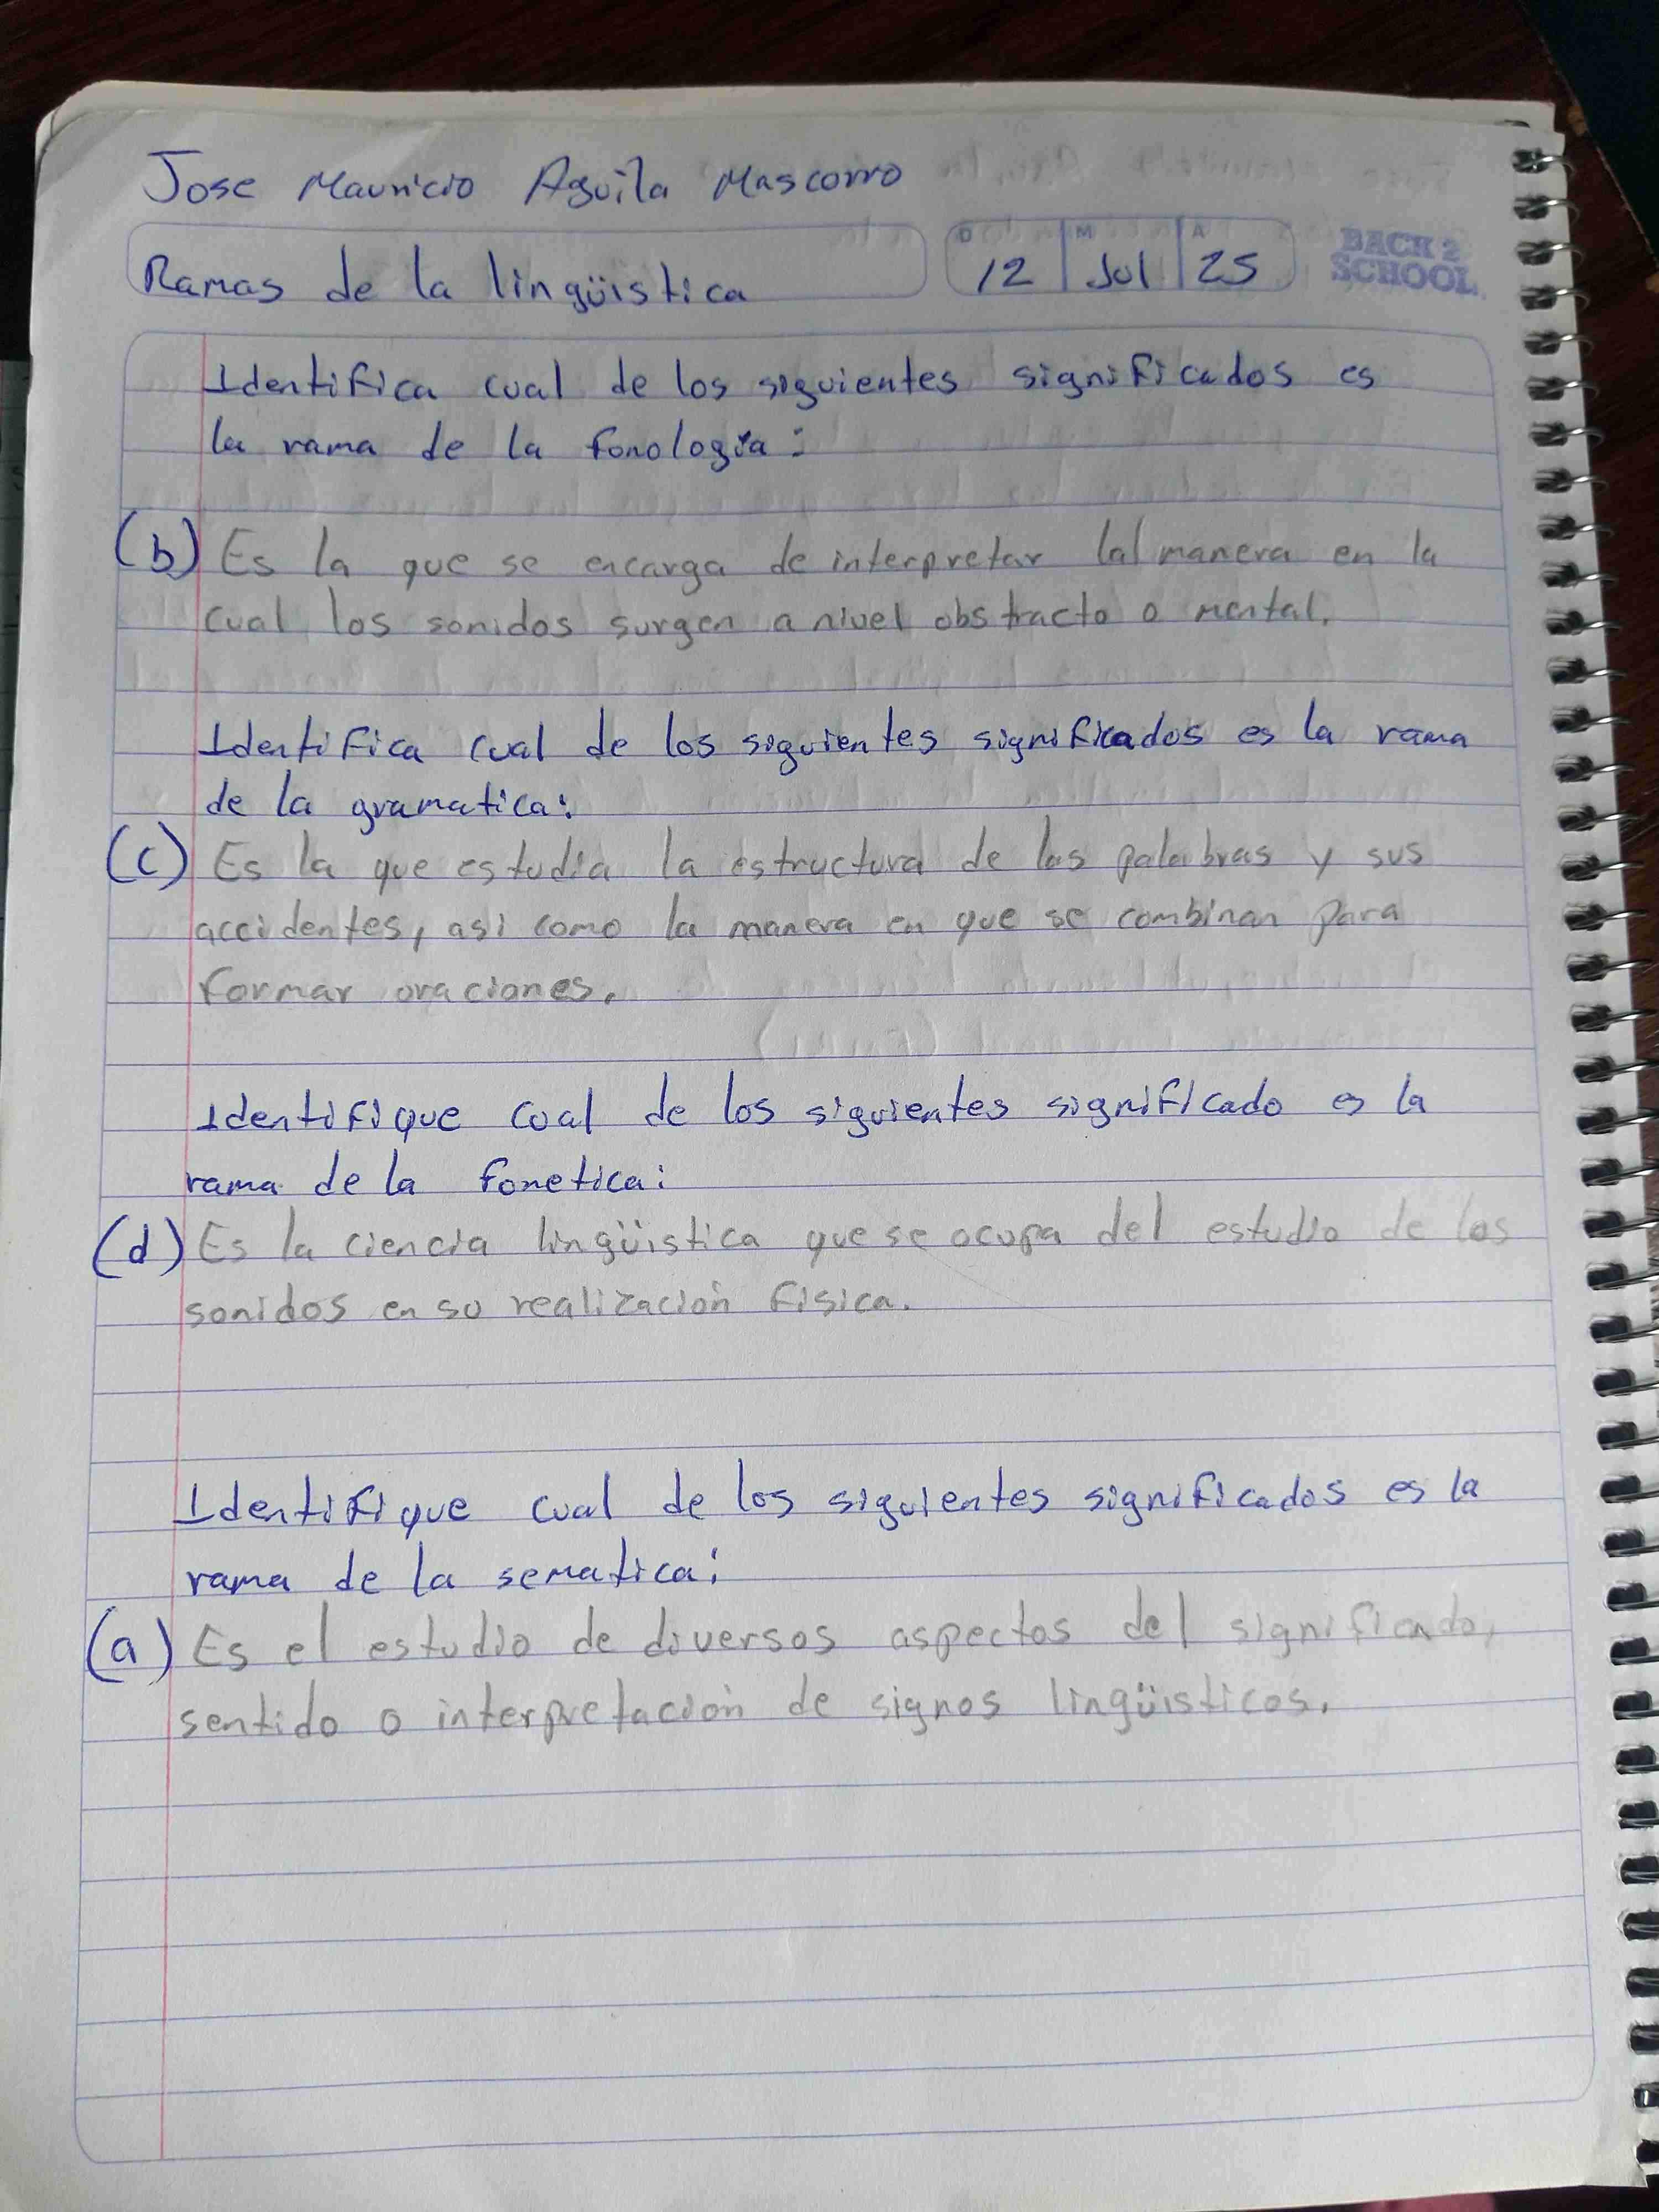 Jose Mauricio Aguila Mascorro
D M A
Ramas de la lingüistica 12 Jul 25
BACK 2
SCHOOL
Identifica cual de los siguientes significados es
la rama de la fonología:
(b) Es la que se encarga de interpretar lal manera en la
cual los sonidos surgen a nivel obstracto o mental.
Identifica cual de los siguientes significados es la rama
de la gramatica:
(c) Es la que estudia la estructura de las palabras y sus
accidentes, asi como la manera en que se combinan para
formar oraciones.
Identifique cual de los siguientes significado es la
rama de la fonetica:
(d) Es la ciencia lingüistica que se ocupa del estudio de los
sonidos en su realización fisica.
Identifique cual de los siguientes significados es la
rama de la sematica:
(a) Es el estudio de diversos aspectos del significado,
sentido o interpretación de signos lingüisticos.